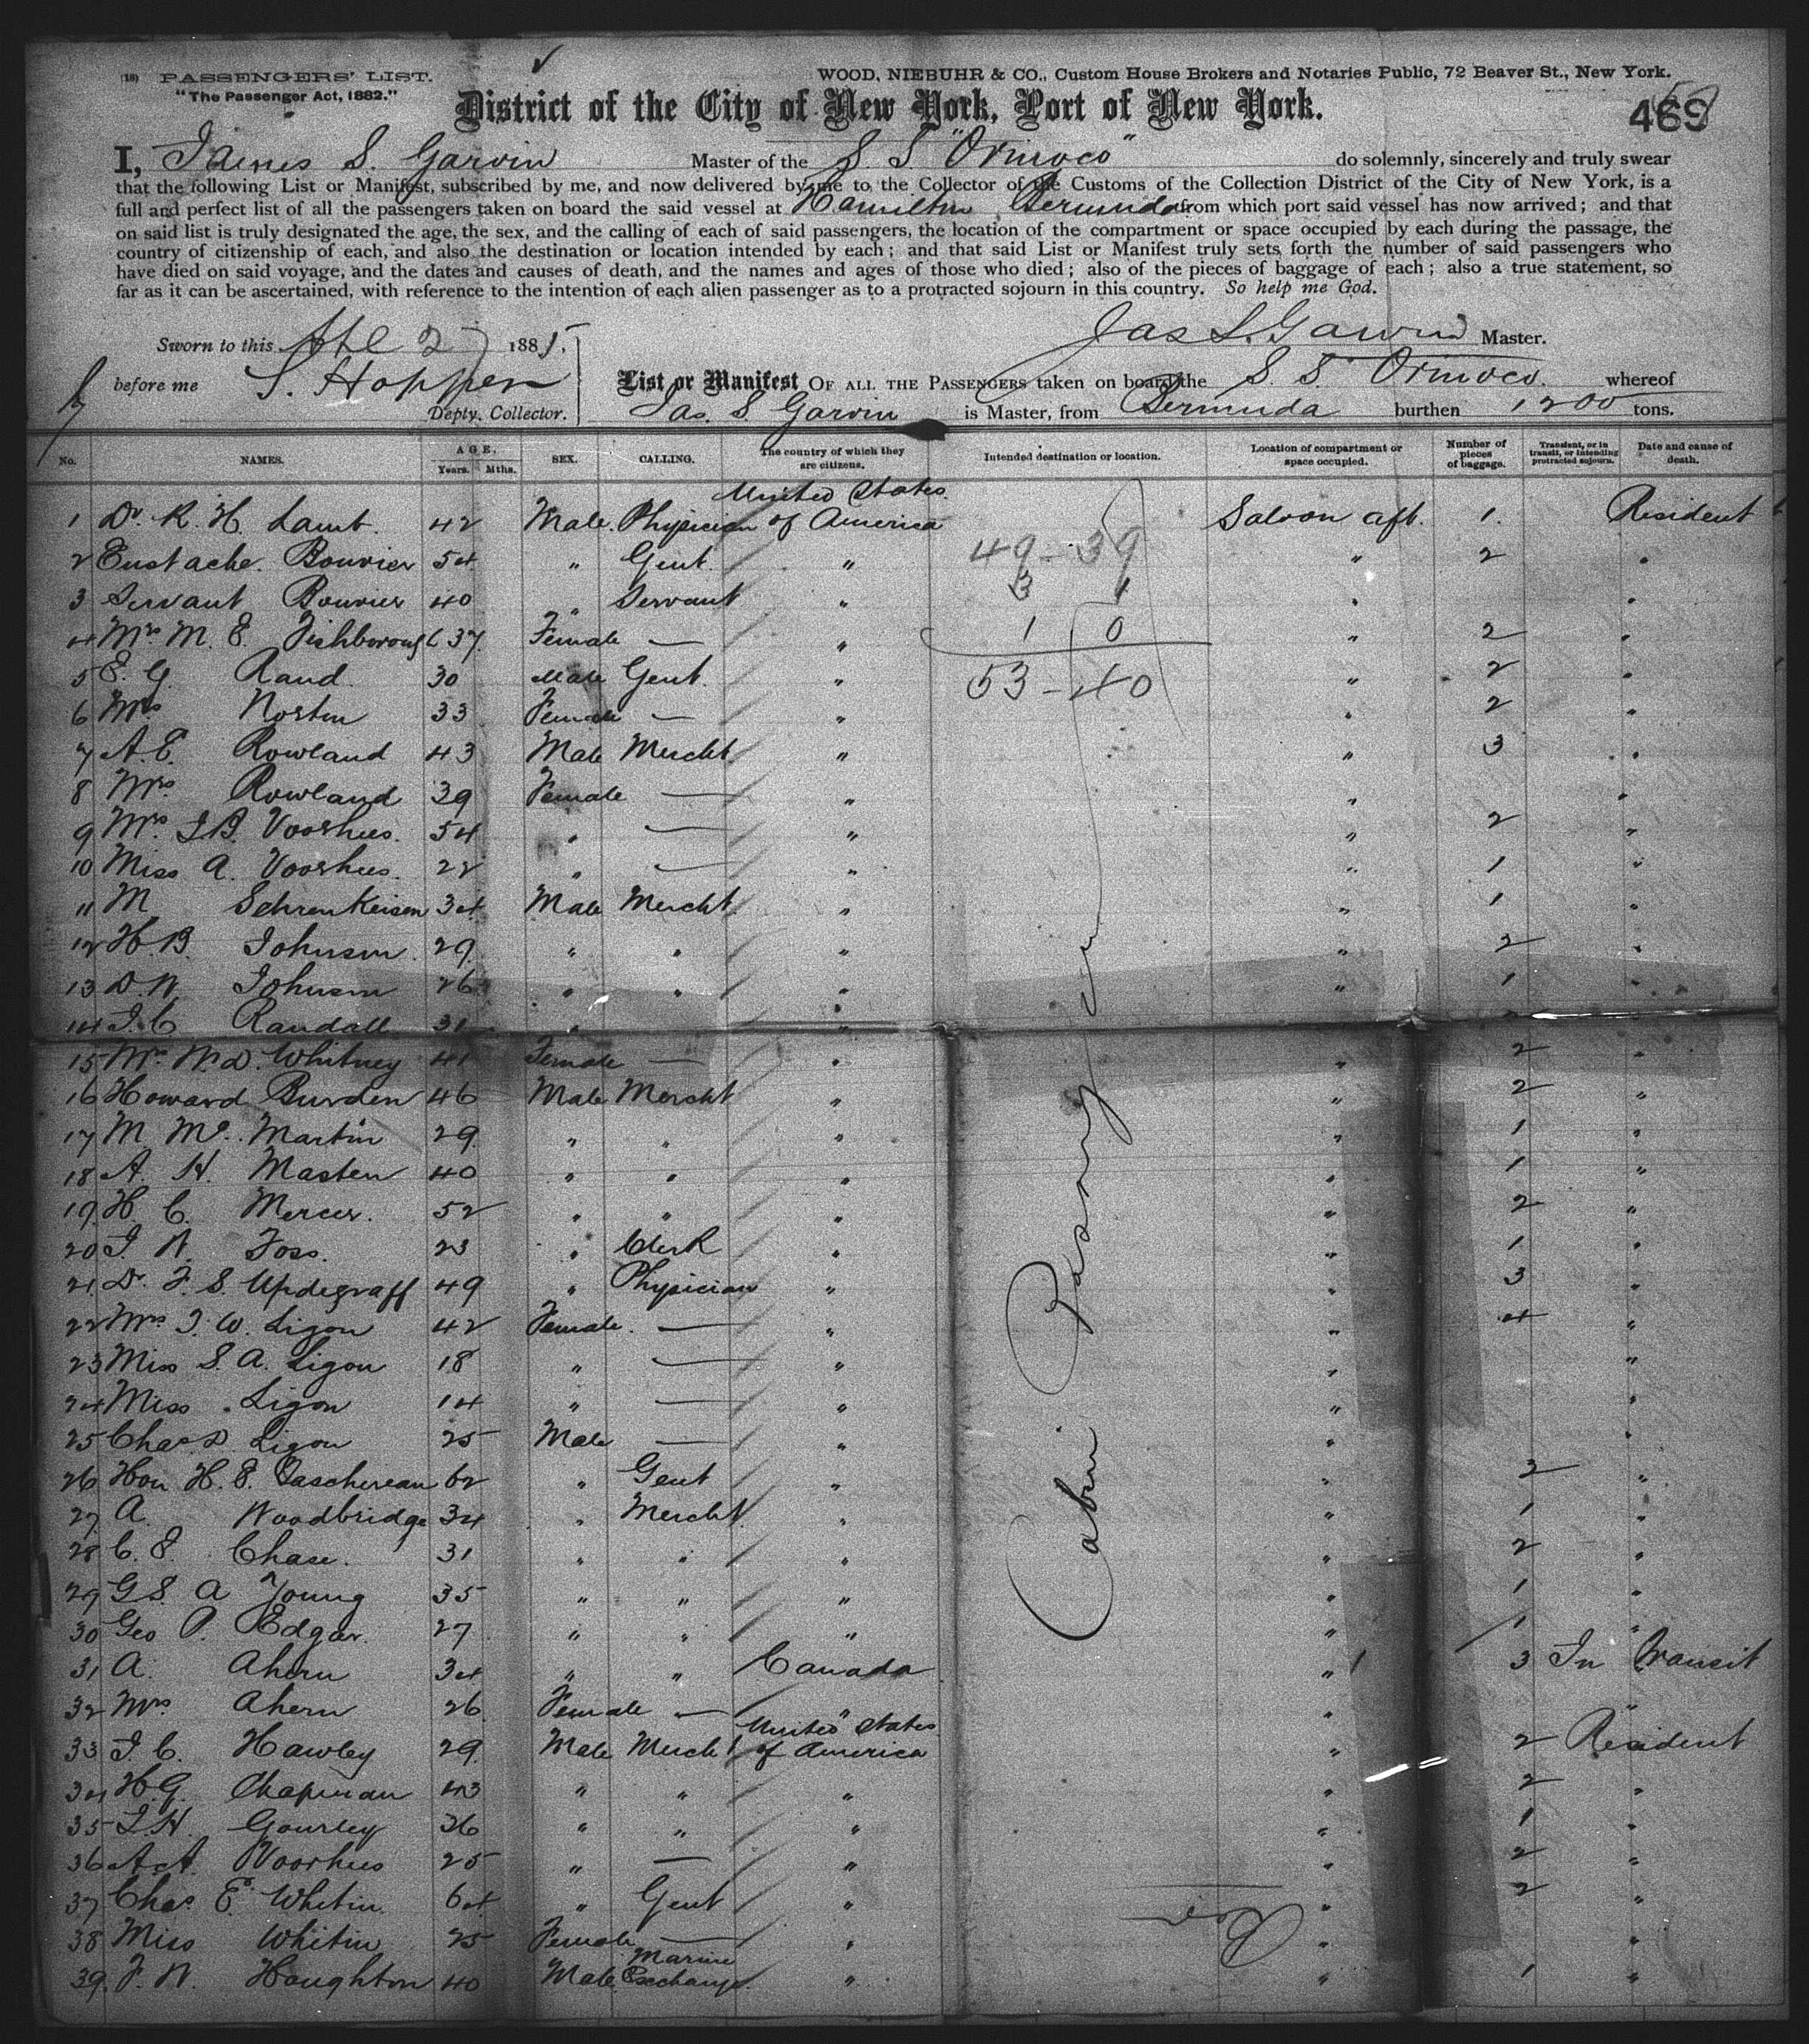 (18) PASSENGERS' LIST.
"The Passenger Act, 1882."
WOOD, NIEBUHR & CO., Custom House Brokers and Notaries Public, 72 Beaver St., New York.
District of the City of New York, Port of New York.
469
I, James S. Garvin Master of the S. S "Orinoco" do solemnly, sincerely and truly swear
that the following List or Manifest, subscribed by me, and now delivered by me to the Collector of the Customs of the Collection District of the City of New York, is a
full and perfect list of all the passengers taken on board the said vessel at Hamilton Bermuda from which port said vessel has now arrived; and that
on said list is truly designated the age, the sex, and the calling of each of said passengers, the location of the compartment or space occupied by each during the passage, the
country of citizenship of each, and also the destination or location intended by each; and that said List or Manifest truly sets forth the number of said passengers who
have died on said voyage, and the dates and causes of death, and the names and ages of those who died; also of the pieces of baggage of each; also a true statement, so
far as it can be ascertained, with reference to the intention of each alien passenger as to a protracted sojourn in this country. So help me God.
Sworn to this 27 1885.
Jas S. Garvin Master.
before me S. Hoppen
Depty. Collector.
List or Manifest OF ALL THE PASSENGERS taken on board the S. S. Orinoco. whereof
Jas. S. Garvin is Master, from Bermuda burthen 1200 tons.
No. NAMES. AGE. Years. Mths. SEX. CALLING. The country of which they are citizens. Intended destination or location. Location of compartment or space occupied. Number of pieces of baggage. Transient, or in transit, or intending protracted sojourn. Date and cause of death.
United States
1 Dr. R. H. Lamb. 42 Male. Physician of America Saloon aft. 1. Resident
2 Eustache. Bouvier 54 " Gent. " 49 - 39 " 2 "
3 Servant Bouvier 40 " Servant " 3 1 " "
4 Mrs M. E. Fishborough 37 Female — " 1 0 " 2 "
5 E. G. Rand 30 Male Gent. " 53 - 40 " 2 "
6 Mrs Norton 33 Female — " " 2 "
7 A. E. Rowland 43 Male Mercht. " " 3 "
8 Mrs Rowland 39 Female — " " "
9 Mrs. J. B. Voorhees. 54 " — " " 2 "
10 Miss A. Voorhees. 22 " — " " 1 "
11 M Schrenkeisen 34 Male Mercht. " " 1 "
12 H. B. Johnson. 29 " " " " 2 "
13 D. W. Johnson 26 " " " " 1 "
14 J. C. Randall 31 " "
15 Mrs W. D. Whitney 41 Female — " " 2 "
16 Howard Burden 46 Male Mercht " " 2 "
17 M Mc. Martin 29 " " " " 1 "
18 A. H. Masten 40 " " " " 1 "
19 H C. Mercer. 52 " " " " 2 "
20 J. W. Foss. 23 " Clerk " " 1 "
21 Dr. F. S. Updegraff 49 " Physician " " 3 "
22 Mrs J. W. Ligon 42 Female. — " " 4 "
23 Miss S. A. Ligon 18 " — " " "
24 Miss Ligon 14 " — " " "
25 Chas D. Ligon 25 Male — " " "
26 Hon H. E. Taschereau 62 " Gent " " 2 "
27 A. Woodbridge 34 " Mercht. " " 1 "
28 C. E. Chase. 31 " " " " 2 "
29 G S. A Young 35 " " " " 1 "
30 Geo P. Edgar. 27 " " " " 1 "
31 A. Ahern 34 " " Canada " 3 In Transit
32 Mrs. Ahern 26 Female — " " "
United States
33 J. C. Hawley 29 Male Mercht of America " 2 Resident
34 H. G. Chapman 43 " " " " 2 "
35 J. H. Gourley 36 " " " " 1 "
36 A. A. Voorhees 25 " — " " 2 "
37 Chas. E. Whitin 64 " Gent " " 2 "
38 Miss Whitin 25 Female — " " "
39. F. W. Houghton 40 Male Marine Exchange. " " 1 "
Cabin